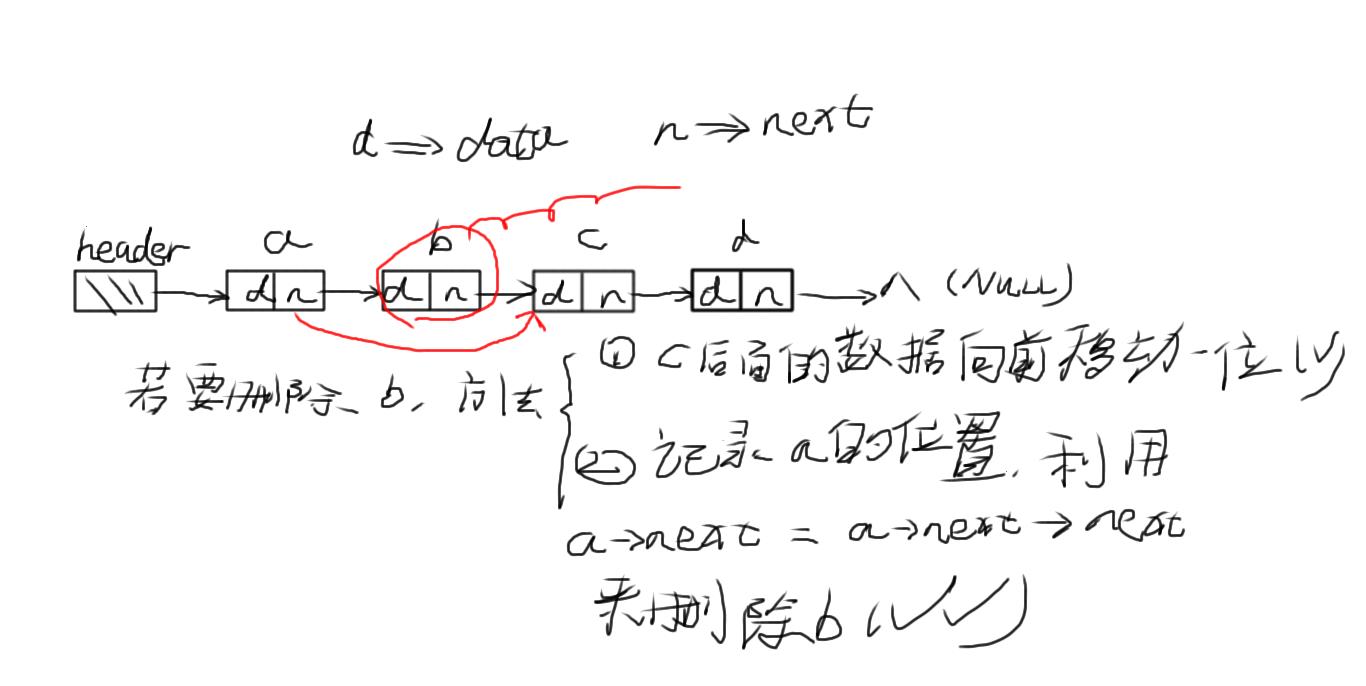 d ⇒ data n ⇒ next
header a b c d
d n d n d n d n ∧ (Null)
① c后面的数据向前移动一位(√)
若要删除b,方法
② 记录a的位置,利用
a→next = a→next→next
来删除b(√√)